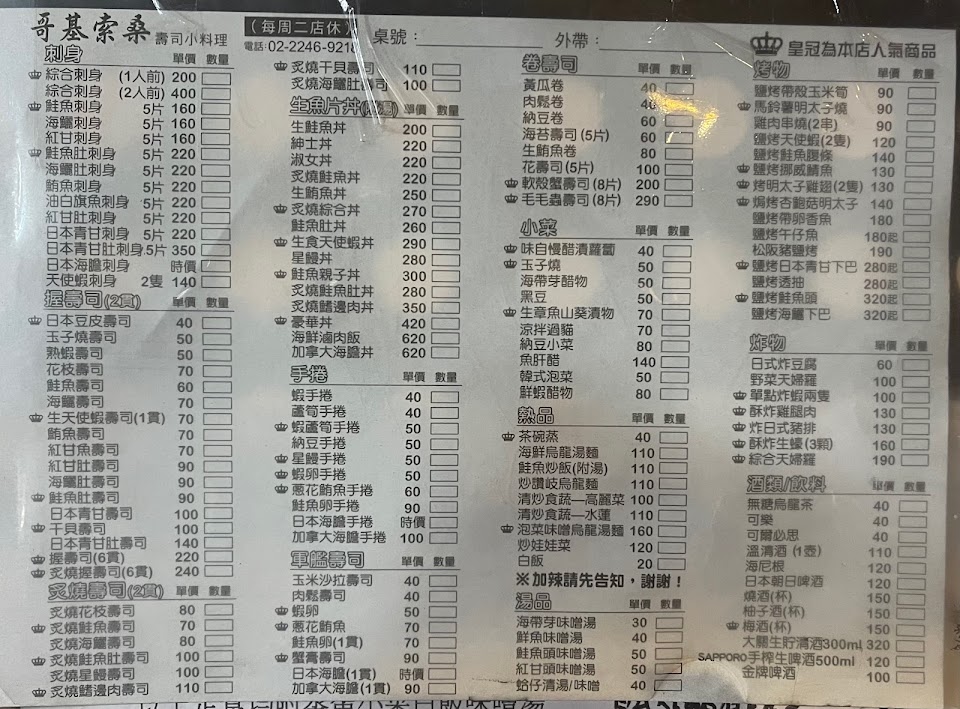 哥基索桑 壽司小料理
(每周二店休)
電話:02-2246-921
桌號:
外帶:
皇冠為本店人氣商品
刺身 單價 數量
綜合刺身 (1人前) 200
綜合刺身 (2人前) 400
鮭魚刺身 5片 160
海鱺刺身 5片 160
紅甘刺身 5片 160
鮭魚肚刺身 5片 220
海鱺肚刺身 5片 220
鮪魚刺身 5片 220
油白旗魚刺身 5片 220
紅甘肚刺身 5片 220
日本青甘刺身 5片 220
日本青甘肚刺身 5片 350
日本海膽刺身 時價
天使蝦刺身 2隻 140
握壽司(2貫) 單價 數量
日本豆皮壽司 40
玉子燒壽司 50
熟蝦壽司 50
花枝壽司 70
鮭魚壽司 60
海鱺壽司 70
生天使蝦壽司(1貫) 70
鮪魚壽司 70
紅甘魚壽司 70
紅甘肚壽司 90
海鱺肚壽司 90
鮭魚肚壽司 90
日本青甘壽司 100
干貝壽司 100
日本青甘肚壽司 140
握壽司(6貫) 220
炙燒握壽司(6貫) 240
炙燒壽司(2貫) 單價 數量
炙燒花枝壽司 80
炙燒鮭魚壽司 70
炙燒海鱺壽司 80
炙燒鮭魚肚壽司 100
炙燒星鰻壽司 100
炙燒鰭邊肉壽司 110
炙燒干貝壽司 110
炙燒海鱺肚壽司 100
生魚片丼 單價 數量
生鮭魚丼 200
紳士丼 220
淑女丼 220
炙燒鮭魚丼 220
生鮪魚丼 250
炙燒綜合丼 270
鮭魚肚丼 260
生食天使蝦丼 290
星鰻丼 280
鮭魚親子丼 300
炙燒鮭魚肚丼 280
炙燒鰭邊肉丼 350
豪華丼 420
海鮮滷肉飯 620
加拿大海膽丼 620
手捲 單價 數量
蝦手捲 40
蘆筍手捲 40
蝦蘆筍手捲 50
納豆手捲 50
星鰻手捲 50
蝦卵手捲 50
蔥花鮪魚手捲 60
鮭魚卵手捲 90
日本海膽手捲 時價
加拿大海膽手捲 100
軍艦壽司 單價 數量
玉米沙拉壽司 40
肉鬆壽司 40
蝦卵 50
蔥花鮪魚 70
鮭魚卵(1貫) 70
蟹膏壽司 90
日本海膽(1貫) 時價
加拿大海膽(1貫) 90
卷壽司 單價 數量
黃瓜卷 40
肉鬆卷 40
納豆卷 60
海苔壽司(5片) 60
生鮪魚卷 80
花壽司(5片) 100
軟殼蟹壽司(8片) 200
毛毛蟲壽司(8片) 290
小菜 單價 數量
味自慢醋漬蘿蔔 40
玉子燒 50
海帶芽醋物 50
黑豆 50
生章魚山葵漬物 70
涼拌過貓 70
納豆小菜 80
魚肝醋 140
韓式泡菜 50
鮮蝦醋物 80
熱品 單價 數量
茶碗蒸 40
海鮮烏龍湯麵 110
鮭魚炒飯(附湯) 110
炒讚岐烏龍麵 110
清炒食蔬—高麗菜 100
清炒食蔬—水蓮 110
泡菜味噌烏龍湯麵 160
炒娃娃菜 120
白飯 20
※加辣請先告知，謝謝！
湯品 單價 數量
海帶芽味噌湯 30
鮮魚味噌湯 40
鮭魚頭味噌湯 50
紅甘頭味噌湯 50
蛤仔清湯/味噌 40
烤物 單價 數量
鹽烤帶殼玉米筍 90
馬鈴薯明太子燒 90
雞肉串燒(2串) 90
鹽烤天使蝦(2隻) 120
鹽烤鮭魚腹條 140
鹽烤挪威鯖魚 130
烤明太子雞翅(2隻) 130
焗烤杏鮑菇明太子 140
鹽烤帶卵香魚 180
鹽烤午仔魚 180起
松阪豬鹽烤 190
鹽烤日本青甘下巴 280起
鹽烤透抽 280起
鹽烤鮭魚頭 320起
鹽烤海鱺下巴 320起
炸物 單價 數量
日式炸豆腐 60
野菜天婦羅 100
單點炸蝦兩隻 100
酥炸雞腿肉 130
炸日式豬排 130
酥炸生蠔(3顆) 160
綜合天婦羅 190
酒類/飲料 單價 數量
無糖烏龍茶 40
可樂 40
可爾必思 40
溫清酒(1壺) 110
海尼根 120
日本朝日啤酒 120
燒酒(杯) 150
柚子酒(杯) 150
梅酒(杯) 150
大關生貯清酒300ml 320
SAPPORO手榨生啤酒500ml 120
金牌啤酒 100